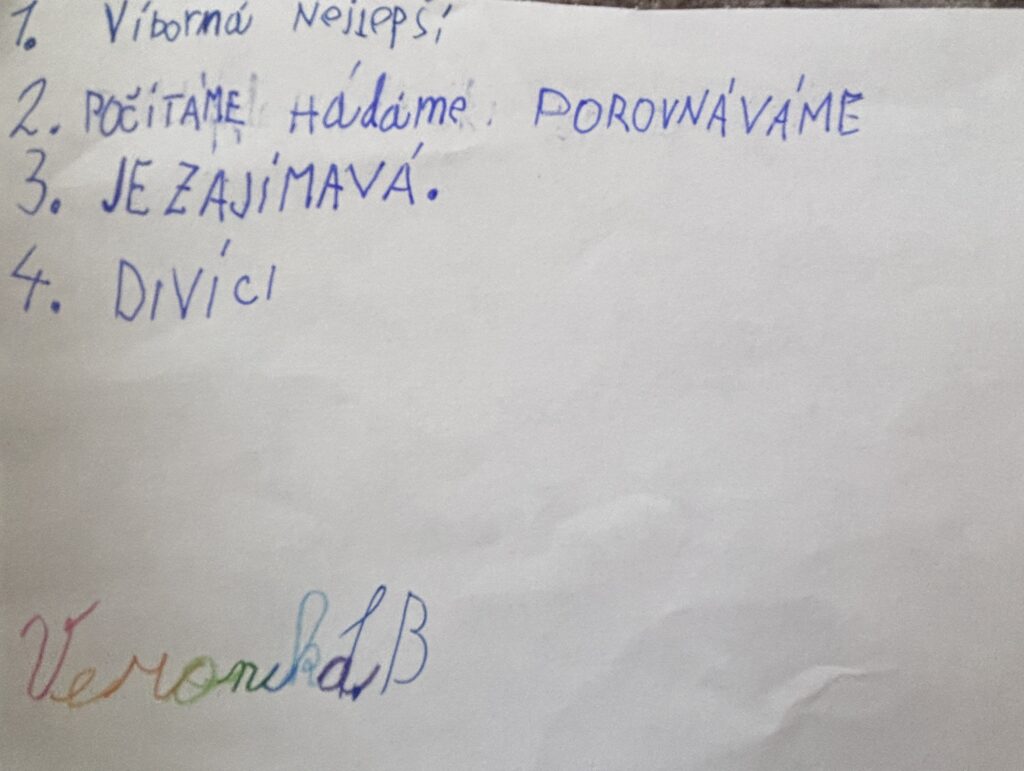 1. Víborná Nejlepší
2. POČÍTÁME Hádáme. POROVNÁVÁME
3. JE ZAJÍMAVÁ.
4. DIVÍCI
Veronika B